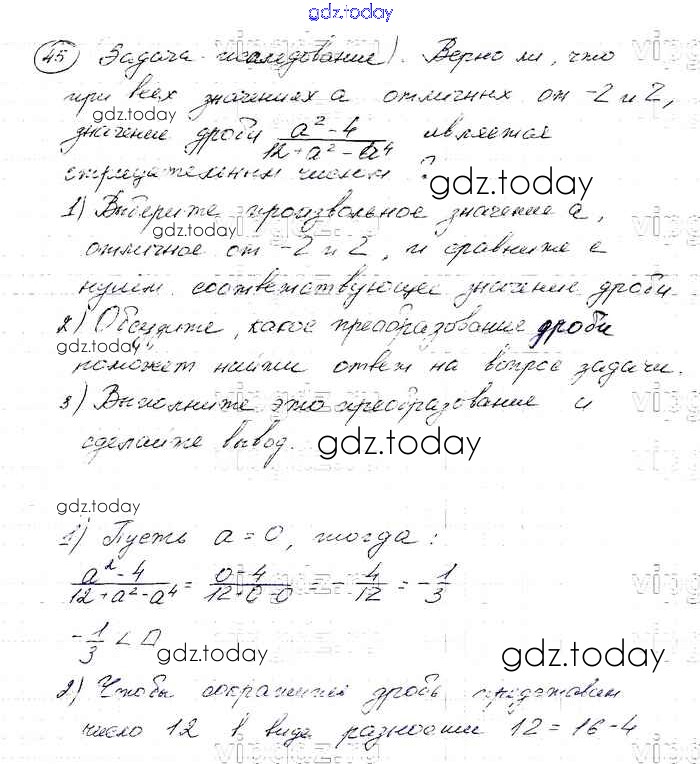 gdz.today
45 Задача-исследование). Верно ли, что
при всех значениях a отличных от -2 и 2,
gdz.today
значение дроби (a² - 4)/(12 + a² - a⁴) является
отрицательным числом ?
gdz.today
1) Выберите произвольное значение a,
gdz.today
отличное от -2 и 2, и сравните с
нулём соответствующее значение дроби
2) Обсудите, какое преобразование дроби
gdz.today
поможет найти ответ на вопрос задачи.
3) Выполните это преобразование и
сделайте вывод.
gdz.today
gdz.today
1) Пусть a = 0, тогда:
(a² - 4)/(12 + a² - a⁴) = (0 - 4)/(12 + 0 - 0) = - 4/12 = - 1/3
- 1/3 < 0
gdz.today
gdz.today
2) Чтобы сократить дробь представим
число 12 в виде разности 12 = 16 - 4